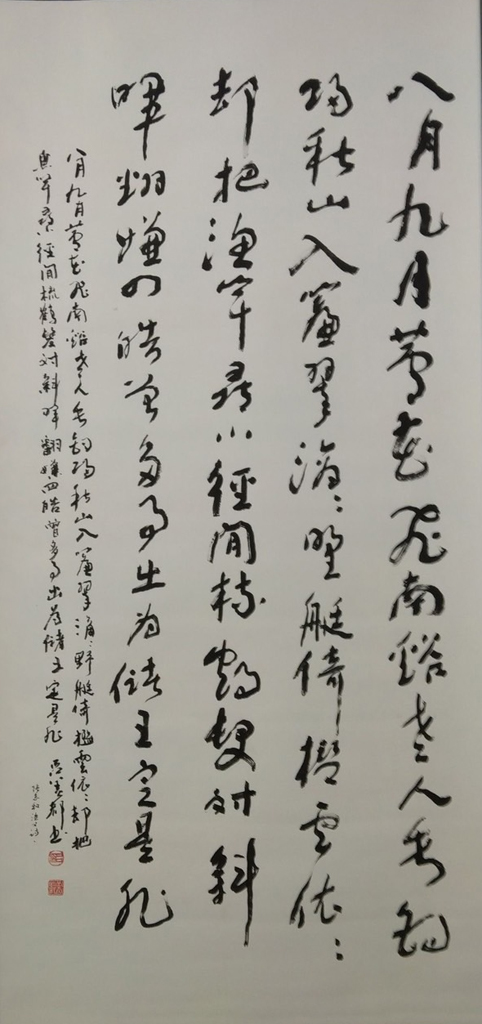 八月九月蘆花飛南谿老人垂釣
歸秋山入簾翠滴〻野艇倚檻雲依〻
却把漁竿尋小徑閒梳鶴髮對斜
暉翻嫌四皓曾多事出為儲王定是非
八月九月蘆花飛南谿老人垂釣歸秋山入簾翠滴〻野艇倚檻雲依〻却把
漁竿尋小徑閒梳鶴髮對斜暉翻嫌四皓曾多事出為儲王定是非
張志和漁父詩